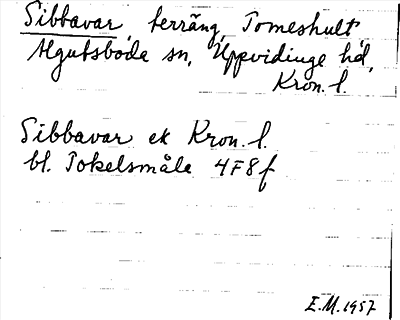 Sibbavar, terräng, Tomeshult
Algutsboda sn, Uppvidinge hd,
Kron. l.
Sibbavar ek Kron. l.
bl. Tokelsmåla 4F8f
E.M. 1957